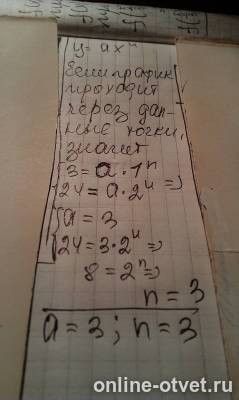 y = axⁿ
Если график
проходит
через дан-
ные точки,
значит
{3 = a · 1ⁿ
{24 = a · 2ⁿ =>
{a = 3
{24 = 3 · 2ⁿ =>
8 = 2ⁿ =>
n = 3
a = 3 ; n = 3
online-otvet.ru